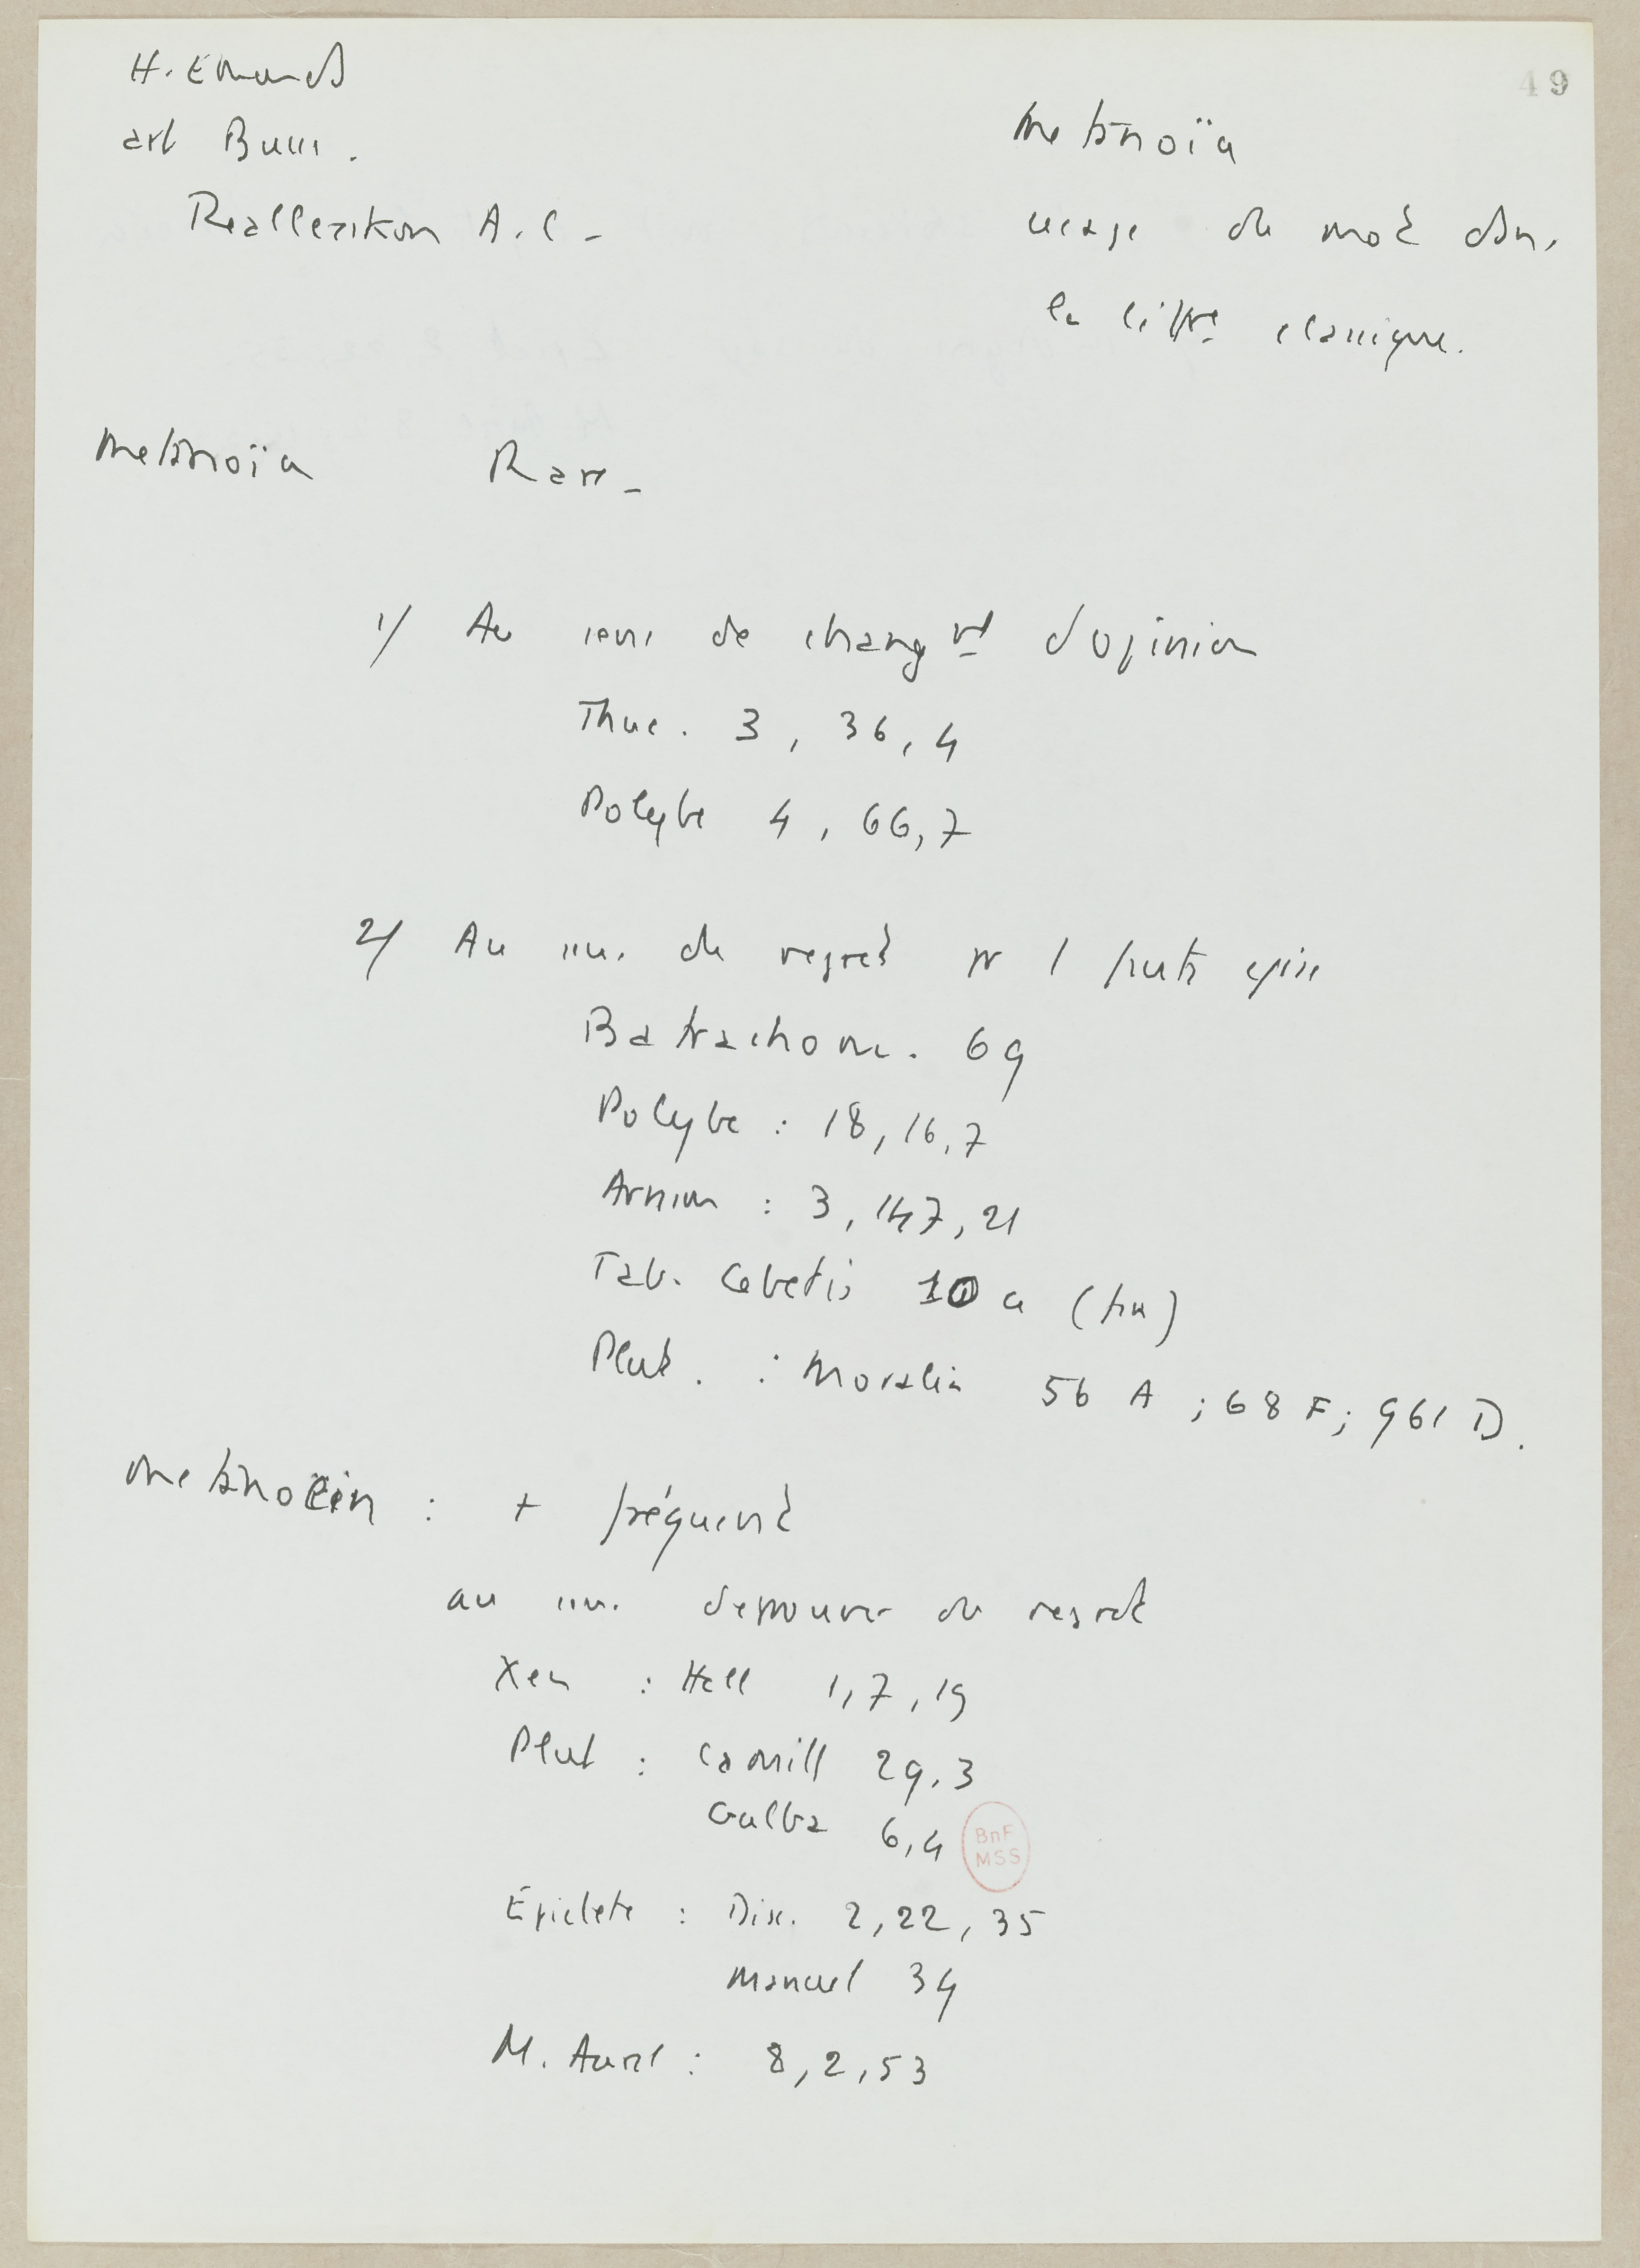 49
H. Emonds
art Buss.
Reallexikon A.C -
Metanoïa
usage du mot dans
la littre classique.
Metanoïa Rare -
1/ Au sens de changt d'opinion
Thuc. 3, 36, 4
Polybe 4, 66, 7
2/ Au sens de regret pr 1 faute
Batrachom. 69
Polybe : 18, 16, 7
Arnim : 3, 147, 21
Tab. Cebetis 10 a
Plut. : Moralia 56 A ; 68 F ; 961 D.
Metanoein : + fréquent
au sens d'eprouver du regret
Xen : Hell 1, 7, 19
Plut : Camill 29, 3
Galba 6, 4
BnF
MSS
Épictete : Diss. 2, 22, 35
Manuel 34
M. Aurel : 8, 2, 53